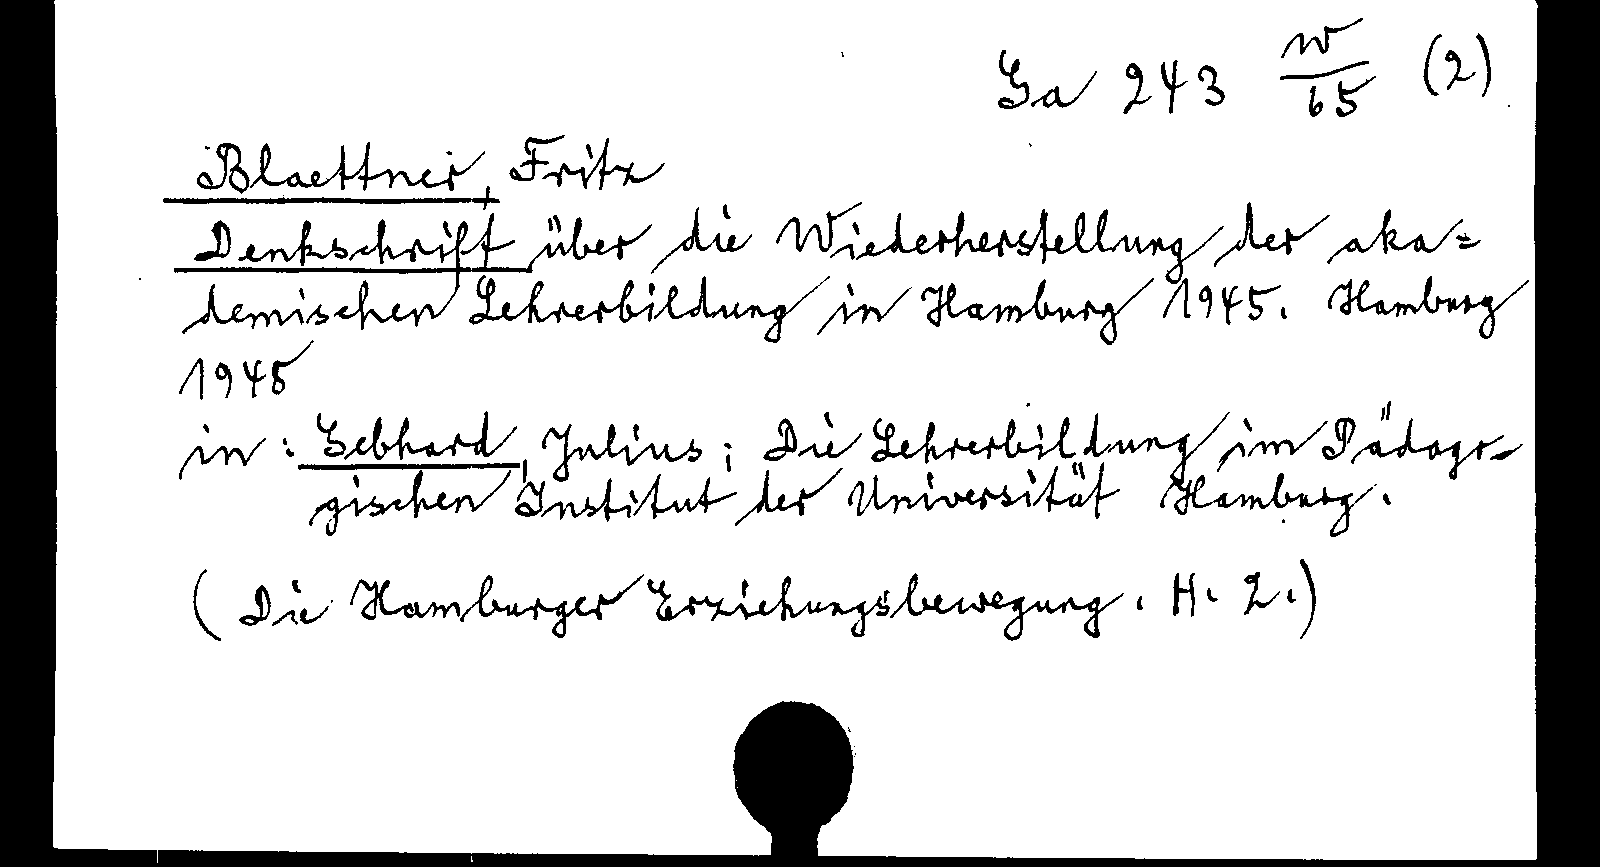 Ga 243 w/65 (2)
Blaettner, Fritz
Denkschrift über die Wiederherstellung der aka=
demischen Lehrerbildung in Hamburg 1945. Hamburg
1945
in: Gebhard, Julius; Die Lehrerbildung im Pädago-
gischen Institut der Universität Hamburg.
(Die Hamburger Erziehungsbewegung. H. 2.)